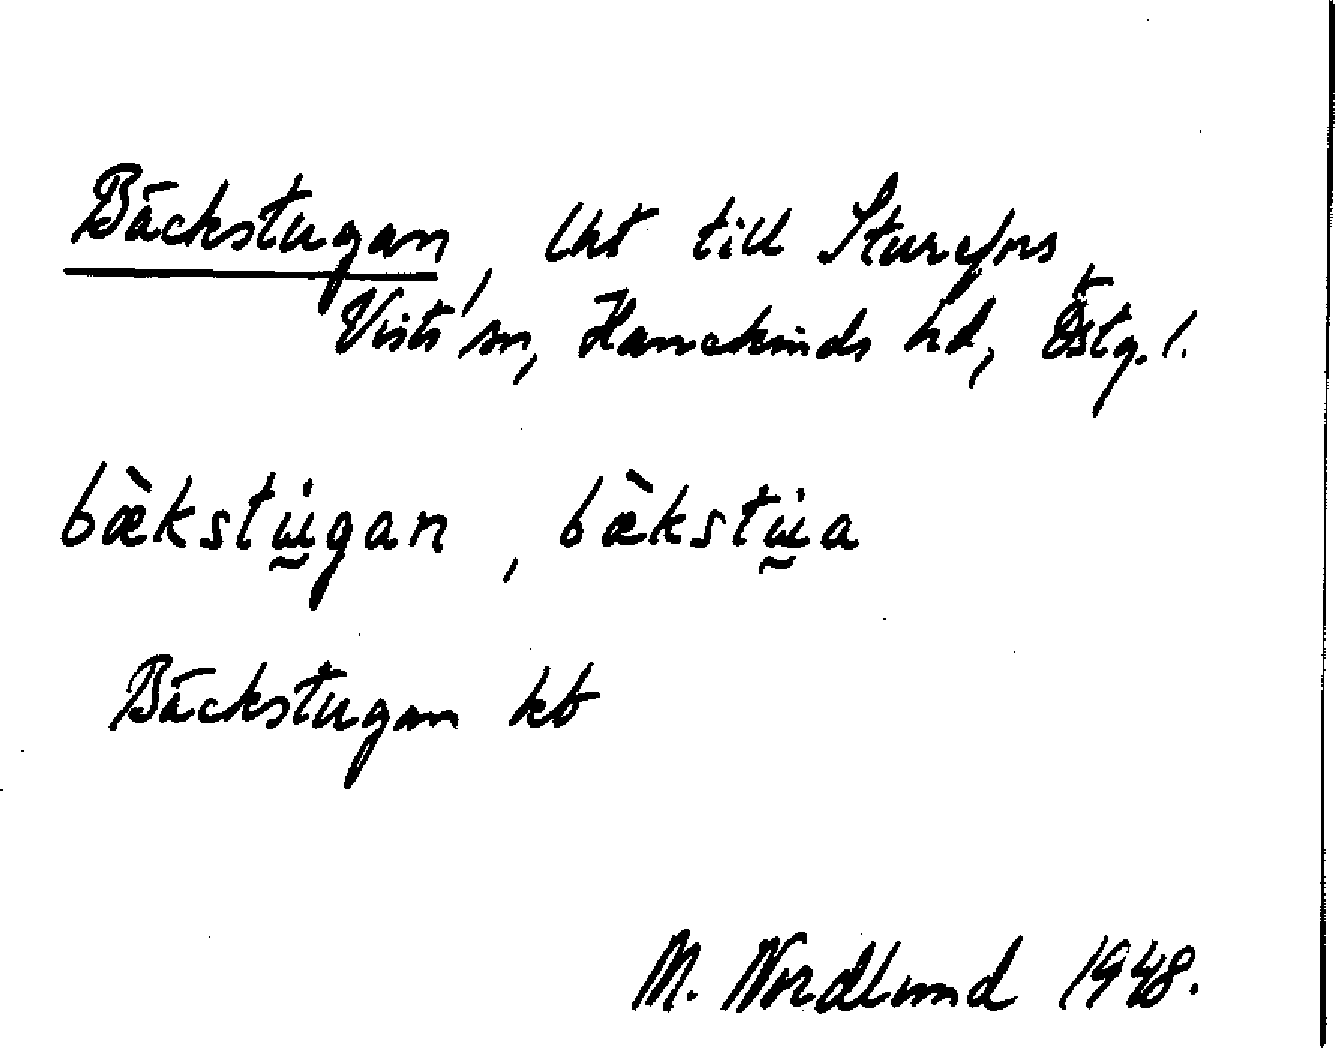 Bäckstugan, lht till Sturefors,
Vists sn, Hanekinds hd, Östg. l.
bæ̀kstṵ̇gan, bæ̀kstṵ̇a
Bäckstugan kb
M. Nordlund 1948.